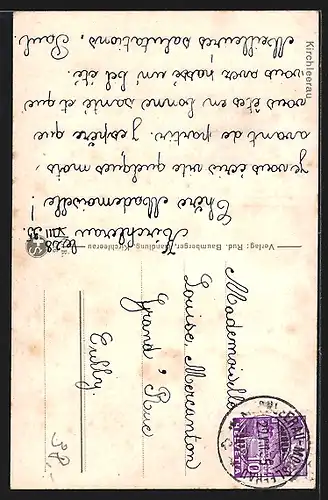 Kirchleerau
Kirchleerau
le 28 VIII 33
Chère Mademoiselle!
je vous écris vite quelques mots,
avant de partir. J'espère que
vous êtes en bonne santé et que
vous avez passé un bel été.
Meilleures salutations, Paul.
Verlag: Rud. Baumberger, Handlung, Kirchleerau
Mademoiselle
Louise Mercanton
Grand' Rue
Cully.
38.-
10